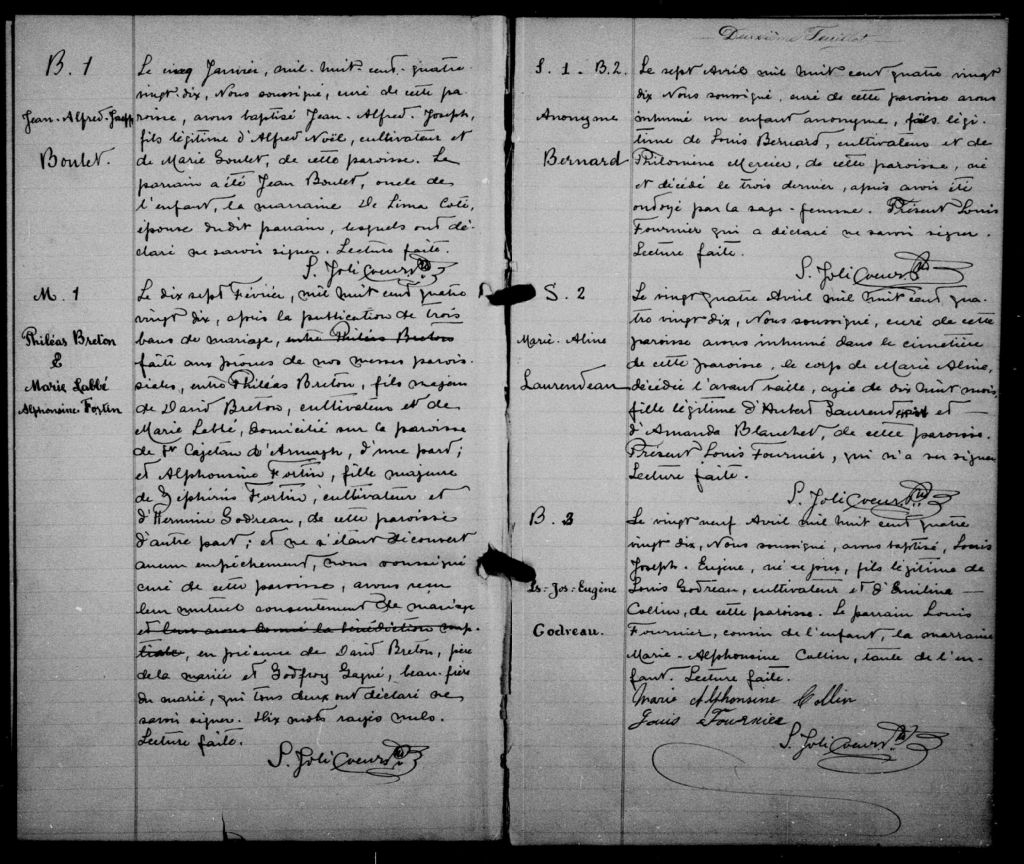 B. 1
Jean-Alfred-Joseph
Boulet.
Le cinq Janvier, mil-huit-cent-quatre-
vingt-dix, Nous soussigné, curé de cette pa-
roisse, avons baptisé Jean-Alfred-Joseph,
fils légitime d'Alfred Noël, cultivateur et
de Marie Goulet, de cette paroisse. Le
parrain a été Jean Boulet, oncle de
l'enfant, la marraine De Lima Coté,
épouse du dit parrain, lesquels ont dé-
claré ne savoir signer. Lecture faite.
S. Joli Coeur Ptre
M. 1
Philéas Breton
&
Marie Labbé
Alphonsine Fortin
Le dix sept Février, mil huit cent quatre
vingt dix, après la publication de trois
bans de mariage, entre Philéas Breton
faite aux prônes de nos messes parois-
siales, entre Philéas Breton, fils majeur
de David Breton, cultivateur et de
Marie Labbé, domicilié sur la paroisse
de St Cajetan d'Armagh, d'une part;
et Alphonsine Fortin, fille majeure
de Zéphirin Fortin, cultivateur et
d'Hermine Godreau, de cette paroisse
d'autre part; et ne s'étant découvert
aucun empêchement, nous soussigné
curé de cette paroisse, avons reçu
leur mutuel consentement de mariage
et leur avons donné la bénédiction nup-
tiale, en présence de David Breton, père
de la mariée et Godfroy Gagné, beau-frère
du marié, qui tous deux ont déclaré ne
savoir signer. Dix mots rayés nuls.
Lecture faite.
S. Joli Coeur Ptre
Deuxième Feuillet
S. 1 - B. 2.
Anonyme
Bernard
Le sept Avril mil huit cent quatre vingt
dix Nous soussigné, curé de cette paroisse avons
inhumé un enfant anonyme, fils légi-
time de Louis Bernard, cultivateur et de
Philomine Mercier, de cette paroisse, né
et décédé le trois dernier, après avoir été
ondoyé par la sage-femme. Présent Louis
Fournier qui a déclaré ne savoir signer.
Lecture faite.
S. Joli Coeur Ptre
S. 2
Marie-Aline
Laurendeau
Le vingt quatre Avril mil huit cent qua-
tre vingt dix, Nous soussigné, curé de cette
paroisse avons inhumé dans le cimetière
de cette paroisse, le corps de Marie Aline,
décédée l'avant veille, agée de dix huit mois,
fille légitime d'Hubert Laurendeau et
d'Amanda Blanchet, de cette paroisse.
Présent Louis Fournier, qui n'a su signer
Lecture faite.
S. Joli Coeur Ptre
B. 3
Ls-Jos-Eugène
Godreau.
Le vingt neuf Avril mil huit cent quatre
vingt dix, Nous soussigné, avons baptisé, Louis
Joseph-Eugène, né ce jour, fils légitime de
Louis Godreau, cultivateur et d'Emilina
Collin, de cette paroisse. Le parrain Louis
Fournier, cousin de l'enfant, la marraine
Marie-Alphonsine Collin, tante de l'en-
fant. Lecture faite.
Marie Alphonsine Collin
Louis Fournier
S. Joli Coeur Ptre